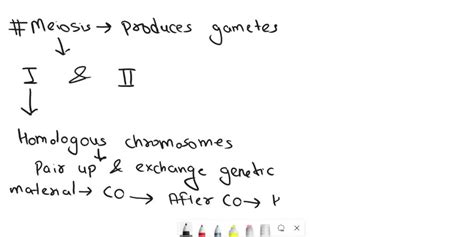 #Meiosis → produces gametes
↓
I & II
↓
Homologous chromosomes
↓
Pair up & exchange genetic
material → CO → After CO →